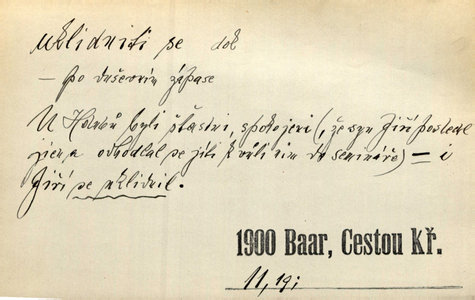 uklidniti se dok
— po duševním zápase
U Holubů byli šťastni, spokojeni (, že syn Jiří poslechl
jich a odhodlal se jíti k vůli nim do semináře) — i
Jiří se uklidnil.
1900 Baar, Cestou Kř.
11, 19;